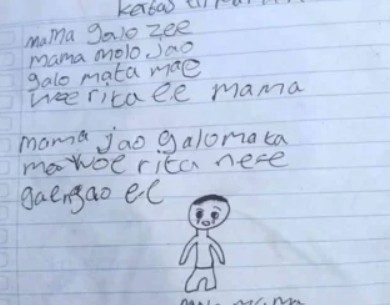 mama galo zee
mama molo jao
galo mata mae
woe rita ee mama
mama jao galomata
ma woe rita nese